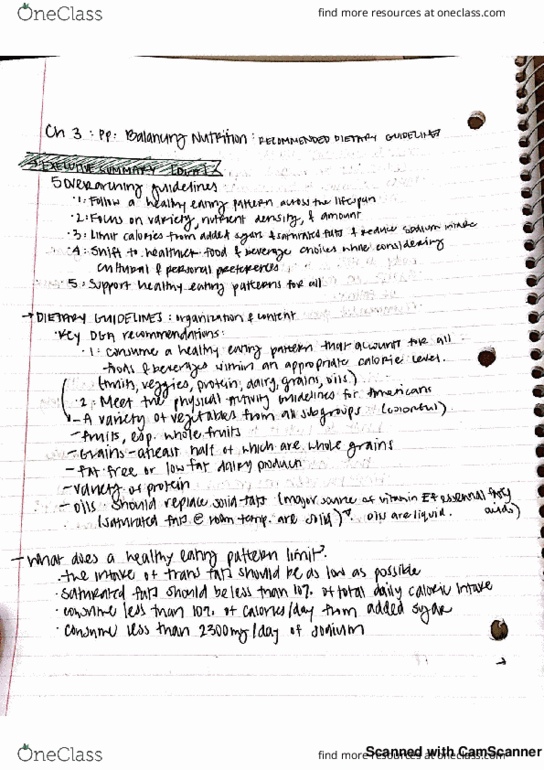 OneClass
find more resources at oneclass.com
Ch 3 : PP: Balancing Nutrition : RECOMMENDED DIETARY GUIDELINES
→ EXECUTIVE SUMMARY [DGA]
5 overarching guidelines
·1: Follow a healthy eating pattern across the lifespan
·2: Focus on variety, nutrient density, & amount
·3: Limit calories from added sugars & saturated fats & reduce sodium intake
·4: Shift to healthier food & beverage choices while considering
cultural & personal preferences
5: Support healthy eating patterns for all
→ DIETARY GUIDELINES : organization & content
·Key DGA recommendations:
·1: Consume a healthy eating pattern that accounts for all
foods & beverages within an appropriate calorie level.
(fruits, veggies, protein, dairy, grains, oils.)
·2: Meet the physical activity guidelines for Americans
- A variety of vegetables from all subgroups (colorful)
- fruits, esp. whole fruits
- Grains - atleast half of which are whole grains
- fat free or low fat dairy product
- variety of protein
- oils should replace solid fats (major source of vitamin E & essential fatty acids)
(saturated fats @ room temp. are solid) oils are liquid.
- What does a healthy eating pattern limit?
· the intake of trans fats should be as low as possible
· saturated fats should be less than 10% of total daily caloric intake
· consume less than 10% of calories/day from added sugar
· consume less than 2300mg/day of sodium
→
OneClass
find more resources at oneclass.com
Scanned with CamScanner